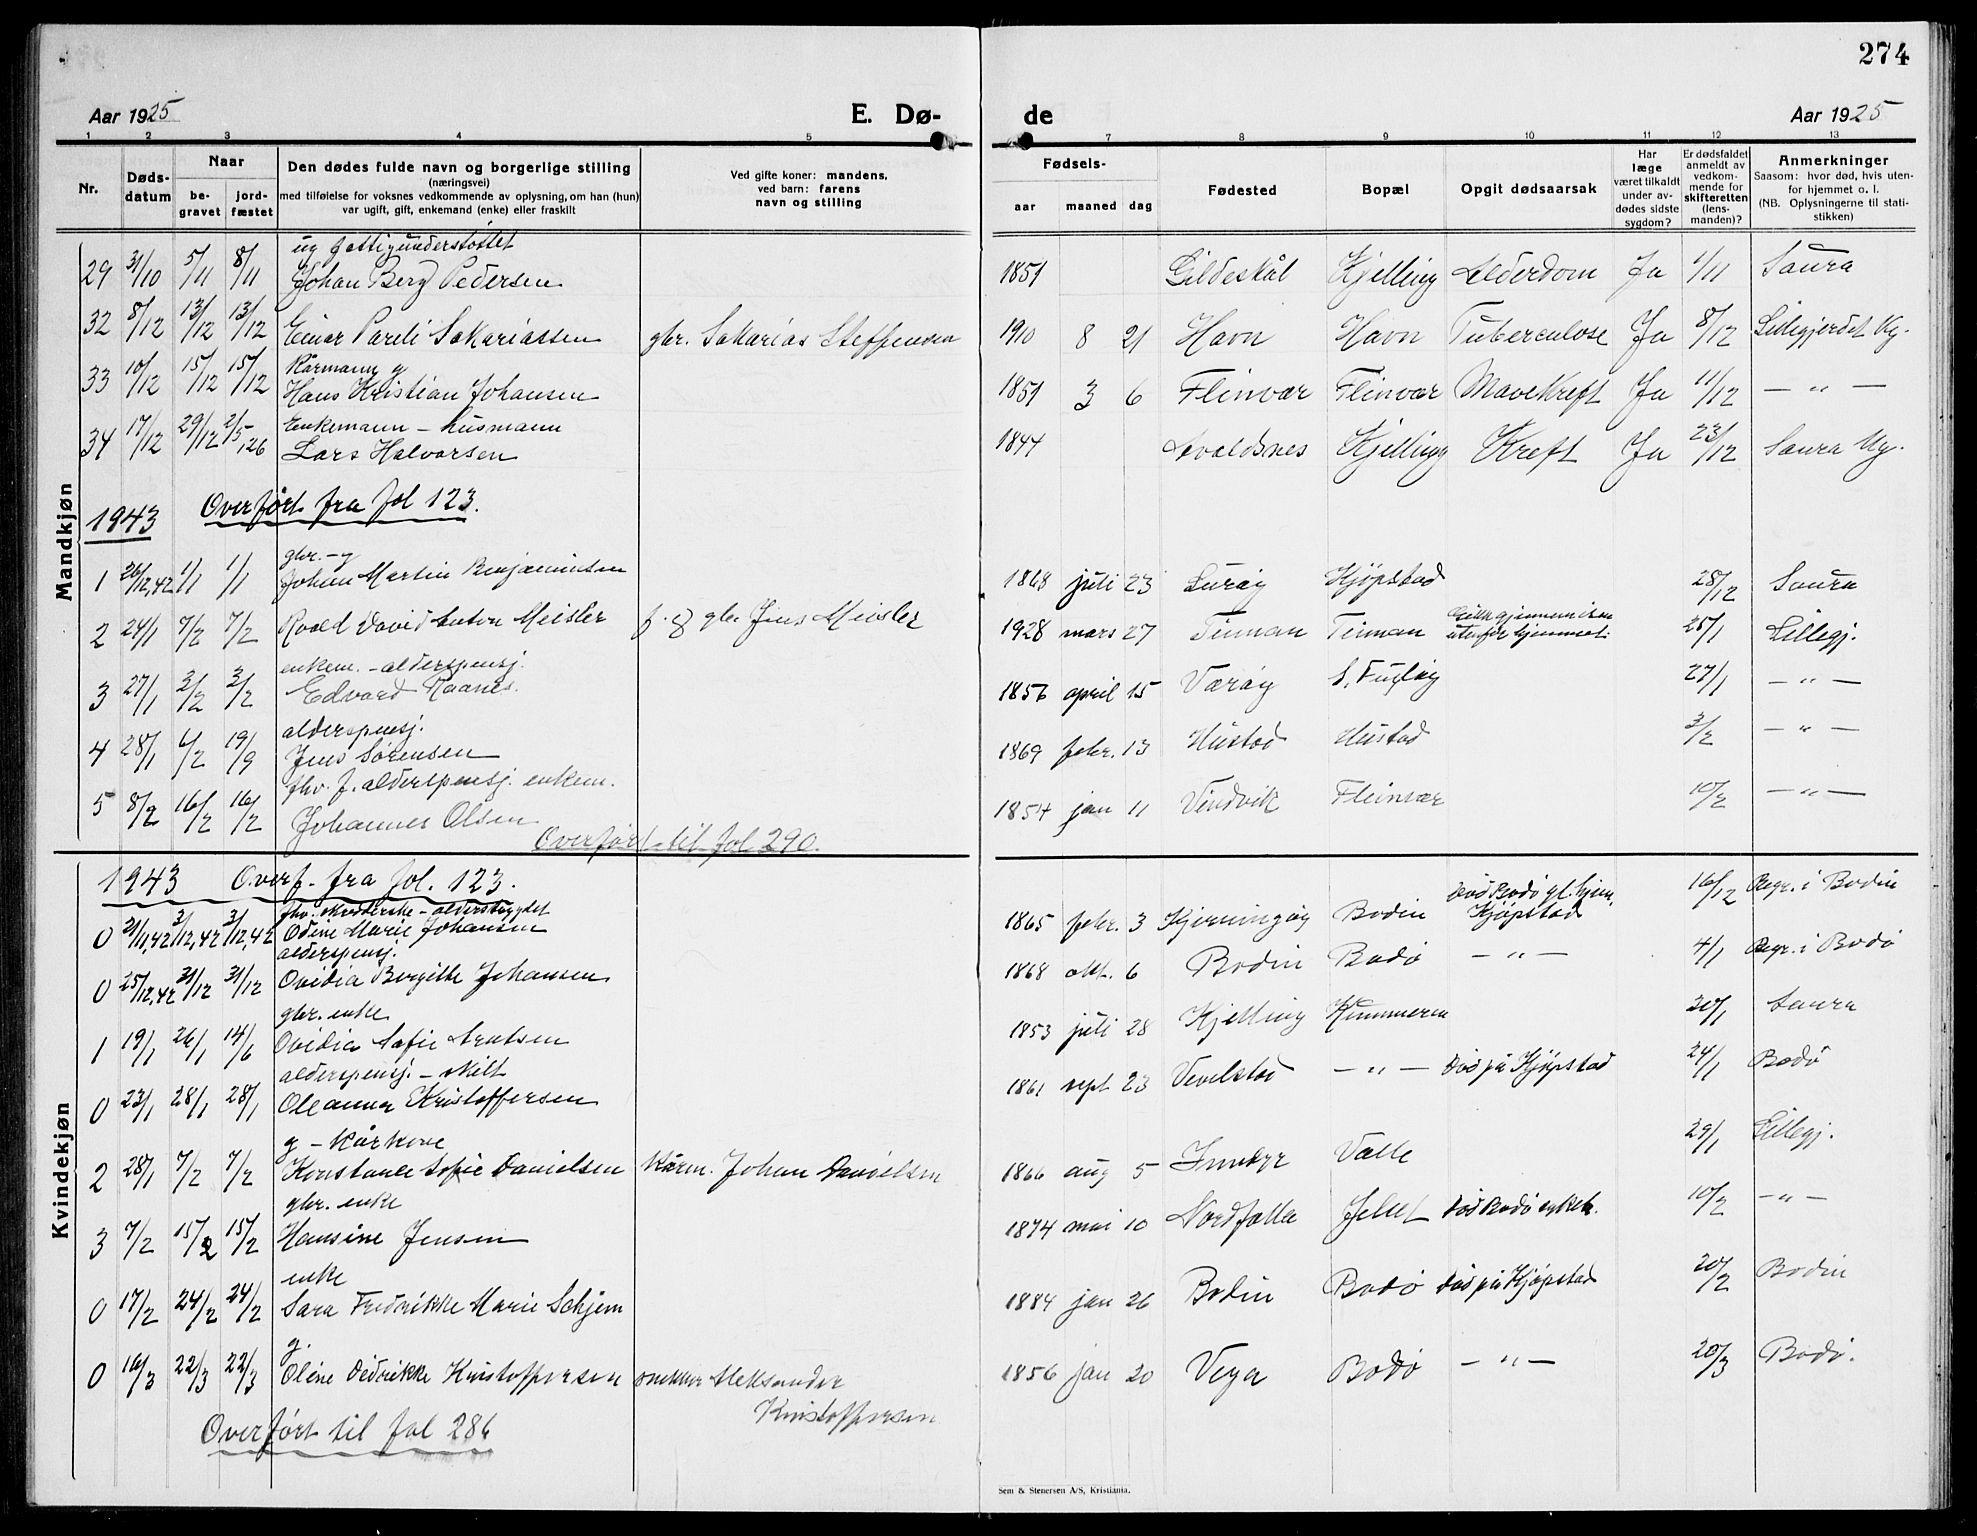 274
Aar 1925 E. Dø- de Aar 1925
1 2 3 4 5 7 8 9 10 11 12 13
Nr. Døds-datum Naar be-gravet jord-fæstet Den dødes fulde navn og borgerlige stilling (næringsvei) med tilføielse for voksnes vedkommende av oplysning, om han (hun) var ugift, gift, enkemand (enke) eller fraskilt Ved gifte koner: mandens, ved barn: farens navn og stilling Fødsels- aar maaned dag Fødested Bopæl Opgit dødsaarsak Har læge været tilkaldt under av-dødes sidste sygdom? Er dødsfaldet anmeldt av vedkom-mende for skifteretten (lens-manden)? Anmerkninger Saasom: hvor død, hvis uten-for hjemmet o. l. (NB. Oplysningerne til stati-stikken)
Mandkjøn
ug fattigunderstøttet
29 31/10 5/11 8/11 Johan Berg Pedersen 1851 Gildeskål Kjelling Alderdom Ja 1/11 Saura
32 8/12 13/12 13/12 Einar Pareli Sakariassen gbr. Sakarias Steffensen 1910 8 21 Havn Havn Tuberculose Ja 8/12 Lillegjerdet Ug.
Kårmann g
33 10/12 15/12 15/12 Hans Kristian Johansen 1851 3 6 Fleinvær Fleinvær Mavekreft Ja 11/12 — " —
Enkemann - husmann
34 17/12 29/12 2/5,26 Lars Halvorsen 1844 Avaldsnes Kjelling Kreft Ja 23/12 Saura Ug.
1943 Overført fra fol 123.
gbr. - g
1 26/12,42 1/1 1/1 Johan Martin Benjaminsen 1868 juli 23 Lurøy Kjøpstad 28/12 Saura
2 24/1 7/2 7/2 Roald David Anton Meisler f. gbr. Jens Meisler 1928 mars 27 Tinnan Tinnan utenfor hjemmet. 25/1 Lillegj.
enkem. - alderspensj.
3 27/1 3/2 3/2 Edvard Raanes. 1856 april 15 Værøy S. Fugløy 27/1 — " —
alderspensj.
4 28/1 6/2 19/9 Jens Sørensen 1869 febr. 13 Hustad Hustad 3/2 — " —
fhv. f. alderspensj. enkem.
5 8/2 16/2 16/2 Johannes Olsen 1854 jan 11 Vindvik Fleinvær 10/2 — " —
Overført til fol 290.
Kvindekjøn
1943 Overf. fra fol. 123.
fhv. - alderstrygdet
0 21/11,42 3/12,42 3/12,42 Odine Marie Johansen 1865 febr. 3 Kjerringøy Bodin Død Bodø gl. hjem, Kjøpstad 16/12 Begr. i Bodin
alderspensj.
0 25/12,42 31/12 31/12 Ovidia Bergitte Johansen 1868 okt. 6 Bodin Bodø — " — 4/1 Begr. i Bodø
gbr. enke
1 19/1 26/1 14/6 Ovidia Sofie Arntsen 1853 juli 28 Kjelling 20/1 Saura
alderspensj. - skilt
0 23/1 28/1 28/1 Oleanna Kristoffersen 1861 sept 23 Vevelstad — " — Død på Kjøpstad 24/1 Bodø
g - kårkone
2 28/1 7/2 7/2 Konstance Sofie Danielsen Kårm. Johan Danielsen 1866 aug 5 Inndyr Valle 29/1 Lillegj.
gbr. enke
3 7/2 15/2 15/2 Hansine Jensen 1874 mai 10 Nordfolla Jelst Død Bodø sykeh. 10/2 — " —
enke
0 17/2 24/2 24/2 Sara Fredrikke Marie Schjem 1884 jan 26 Bodin Bodø Død på Kjøpstad 20/2 Bodin
g.
0 16/3 22/3 22/3 Oline Didrikke Kristoffersen snekker Aleksander Kristoffersen 1856 jan 20 Vega Bodø — " — 20/3 Bodø.
Overført til fol 286
Sem & Stenersen A/S, Kristiania.